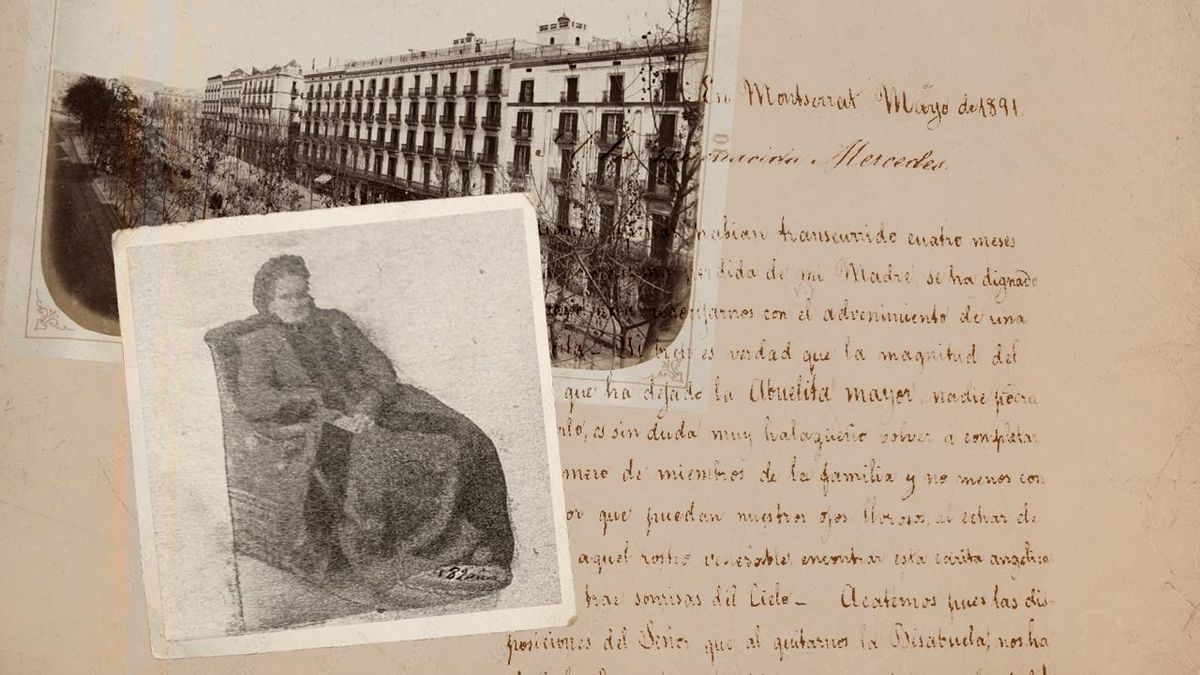 En Montserrat Mayo de 1891
Mercedes.
habian transcurrido cuatro meses
perdida de mi Madre se ha dignado
con el advenimiento de una
es verdad que la magnitud del
que ha dejado la Abuelita mayor, nadie podra
es sin duda muy halagüeño volver a completar
mero de miembros de la familia y no menos con
or que puedan nuestros ojos llorosos, al echar de
aquel rostro venerable, encontrar esta carita angelica
trae sonrisas del Cielo_ Acatemos pues las dis-
posiciones del Señor que al quitarnos la Bisabuela, nos ha